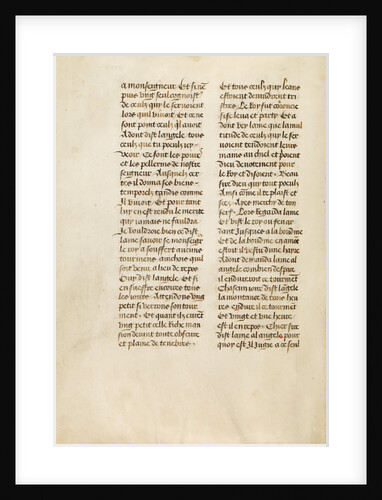 a monseigneur Et si ne
puis ung seul congnoist
de ceulx quy le servoient
lors quil vivoit Et ce ne
sont point ceulx quil avoit
Adont dist langele tous
ceulx que tu poeulx icy
veoir Ce sont les povres
et les pellerins de nostre
seigneur Ausquelz cer
tes il donna ses biens
temporelz tandis comme
Il vivoit Et pour tant
luy en est rendu le merite
quy jamais ne fauldra
Je vouldroie bien ce dist
lame savoir se monseigr
le roy a souffert aucuns
tourmens anchois quil
soit venu a lieu de repos
Ouy dist langele Et si
en sueffre encores tous
les jours Attendons ung
petit se verrons son tour
ment Et quant ilz eurent
ung petit celle riche man
sion devint toute obscure
et plaine de tenebres
Et tous ceulx quy leans
estoient devindrent tri
stres Le Roy fut
se leva et party Et a
dont vey lame que la mul
titude de ceulx quy le ser
voient tendoient leurs
mains au chiel et prioient
dieu devotement pour
le Roy et disoient Beau
sire dieu quy tout poeulx
Ainsi comme il te plaist et
scez Ayes merchy de ton
serf Lors regarda lame
et vist le roy en feu ar
dant Jusques a la boudine
Et de la boudine en amont
estoit il vestu dune haire
Adont demanda lame al
angele combien de fois
il enduroit ce tourment
Chascun jour dist langele
la montance de trois heu
res endure il ce tourment
Et vingt et une heure
est il en repos Chier sire
dist lame al angele pour
quoy est Il jugie a ce seul